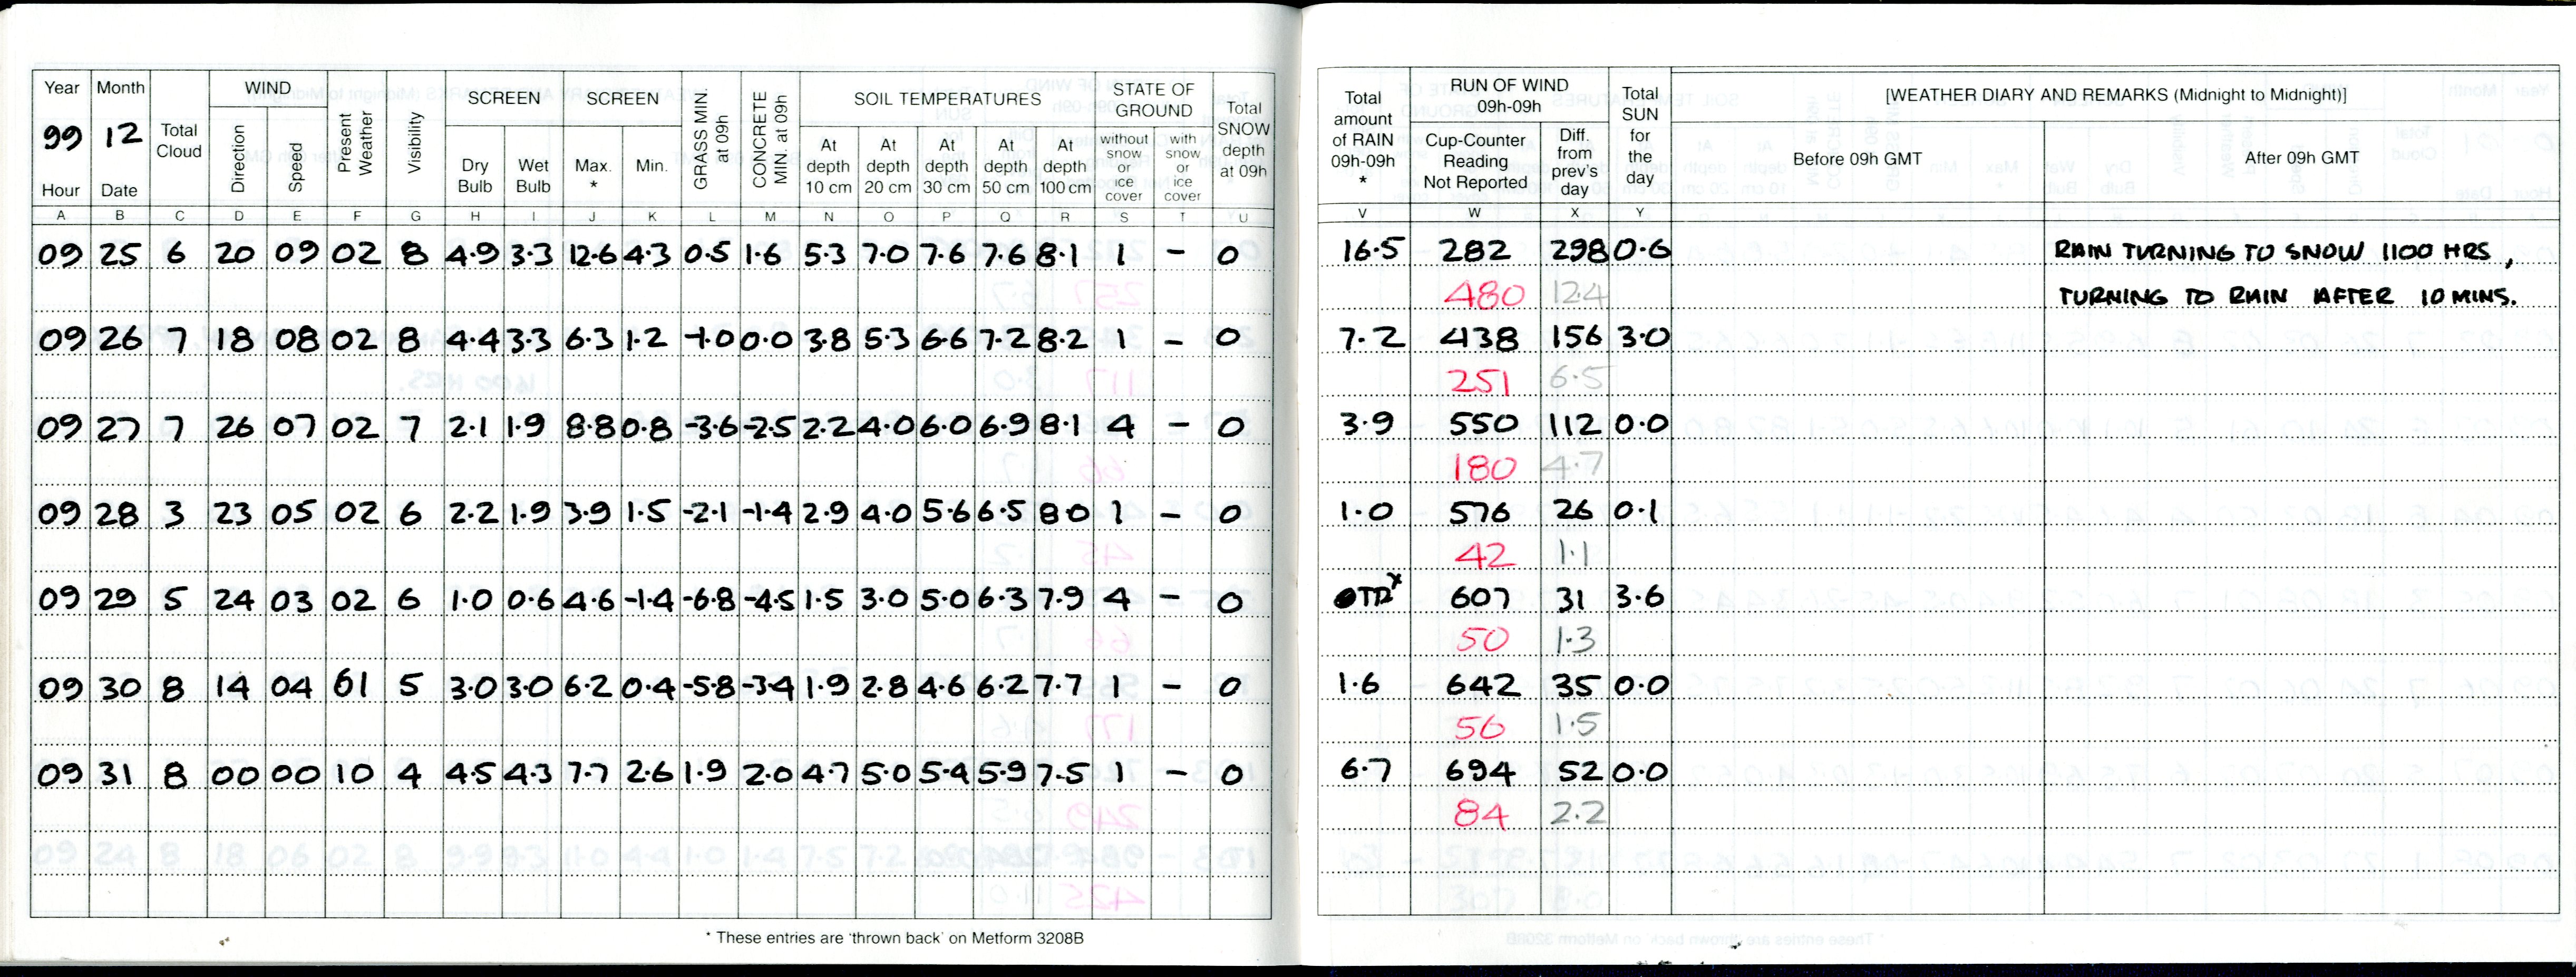 Year Month Total Cloud WIND Present Weather Visibility SCREEN SCREEN GRASS MIN. at 09h CONCRETE MIN. at 09h SOIL TEMPERATURES STATE OF GROUND Total SNOW depth at 09h
99 12 Direction Speed Dry Bulb Wet Bulb Max. * Min. At depth 10 cm At depth 20 cm At depth 30 cm At depth 50 cm At depth 100 cm without snow or ice cover with snow or ice cover
Hour Date
A B C D E F G H I J K L M N O P Q R S T U
09 25 6 20 09 02 8 4.9 3.3 12.6 4.3 0.5 1.6 5.3 7.0 7.6 7.6 8.1 1 – 0
09 26 7 18 08 02 8 4.4 3.3 6.3 1.2 -1.0 0.0 3.8 5.3 6.6 7.2 8.2 1 – 0
09 27 7 26 07 02 7 2.1 1.9 8.8 0.8 -3.6 -2.5 2.2 4.0 6.0 6.9 8.1 4 – 0
09 28 3 23 05 02 6 2.2 1.9 3.9 1.5 -2.1 -1.4 2.9 4.0 5.6 6.5 8.0 1 – 0
09 29 5 24 03 02 6 1.0 0.6 4.6 -1.4 -6.8 -4.5 1.5 3.0 5.0 6.3 7.9 4 – 0
09 30 8 14 04 61 5 3.0 3.0 6.2 0.4 -5.8 -3.4 1.9 2.8 4.6 6.2 7.7 1 – 0
09 31 8 00 00 10 4 4.5 4.3 7.7 2.6 1.9 2.0 4.7 5.0 5.4 5.9 7.5 1 – 0
* These entries are 'thrown back' on Metform 3208B
Total amount of RAIN 09h-09h * RUN OF WIND 09h-09h Total SUN for the day [WEATHER DIARY AND REMARKS (Midnight to Midnight)]
Cup-Counter Reading Not Reported Diff. from prev's day Before 09h GMT After 09h GMT
V W X Y
16.5 282 298 0.6 RAIN TURNING TO SNOW 1100 HRS,
480 12.4 TURNING TO RAIN AFTER 10 MINS.
7.2 438 156 3.0
251 6.5
3.9 550 112 0.0
180 4.7
1.0 576 26 0.1
42 1.1
607 31 3.6
50 1.3
1.6 642 35 0.0
56 1.5
6.7 694 52 0.0
84 2.2